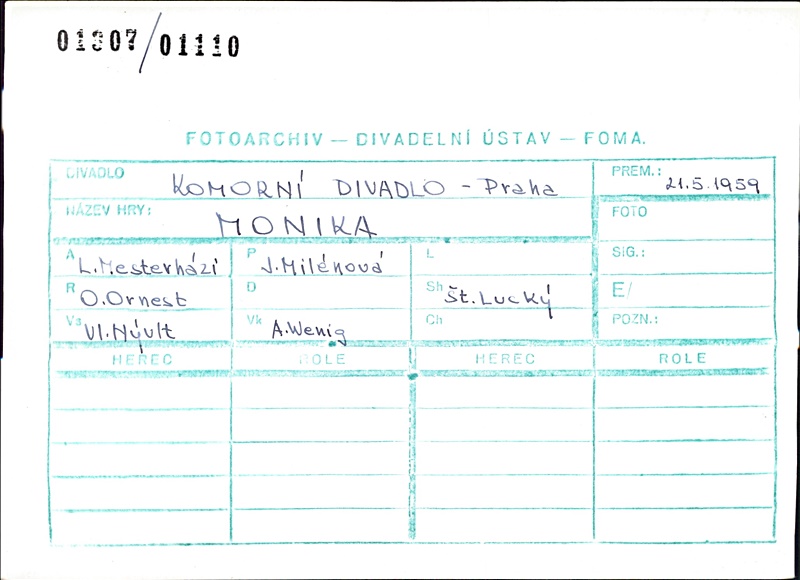 01307/01110
FOTOARCHIV — DIVADELNÍ ÚSTAV — FOMA.
DIVADLO KOMORNÍ DIVADLO - Praha PREM.: 21.5.1959
NÁZEV HRY: MONIKA FOTO
A L.Mesterházi P J.Milénová L SIG.:
R O.Ornest D Sh Št.Lucký E/
Vs Vl.Nývlt Vk A.Wenig Ch POZN.:
HEREC ROLE HEREC ROLE